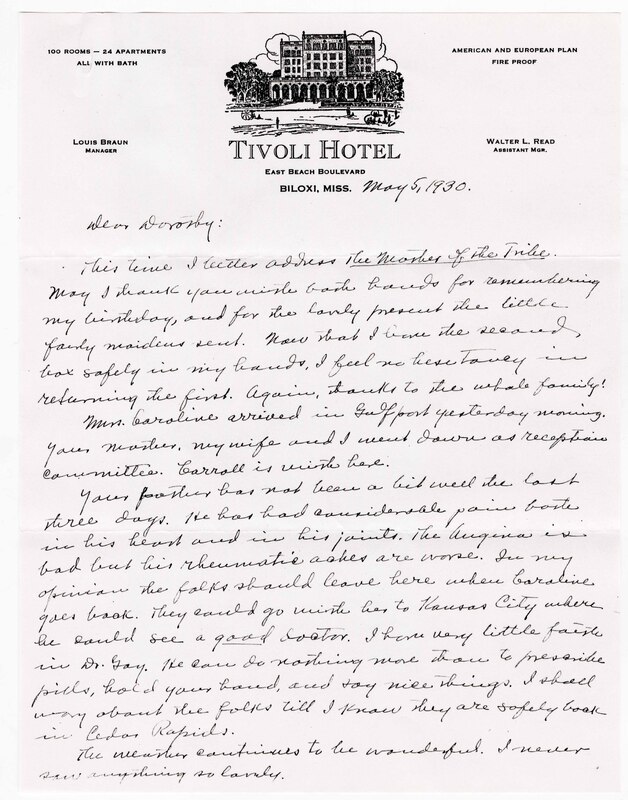 100 ROOMS — 24 APARTMENTS
ALL WITH BATH
AMERICAN AND EUROPEAN PLAN
FIRE PROOF
LOUIS BRAUN
MANAGER
WALTER L. READ
ASSISTANT MGR.
TIVOLI HOTEL
EAST BEACH BOULEVARD
BILOXI, MISS. May 5, 1930.
Dear Dorothy:
This time I better address The Mother of the Tribe.
May I thank you with both hands for remembering
my birthday, and for the lovely present the little
maidens sent. Now that I have the second
box safely in my hands, I feel no hesitancy in
returning the first. Again, thanks to the whole family!
Mrs. Caroline arrived in Gulfport yesterday morning.
Your mother, my wife and I went down as reception
committee. Carroll is with her.
Your father has not been a bit well the last
three days. He has had considerable pain both
in his heart and in his joints. The Angina is
bad but his rheumatic aches are worse. In my
opinion the folks should leave here when Caroline
goes back. They could go with her to Kansas City where
he could see a good doctor. I have very little faith
in Dr. Gay. He can do nothing more than to prescribe
pills, hold your hand, and say nice things. I shall
worry about the folks till I know they are safely back
in Cedar Rapids.
The weather continues to be wonderful. I never
saw anything so lovely.